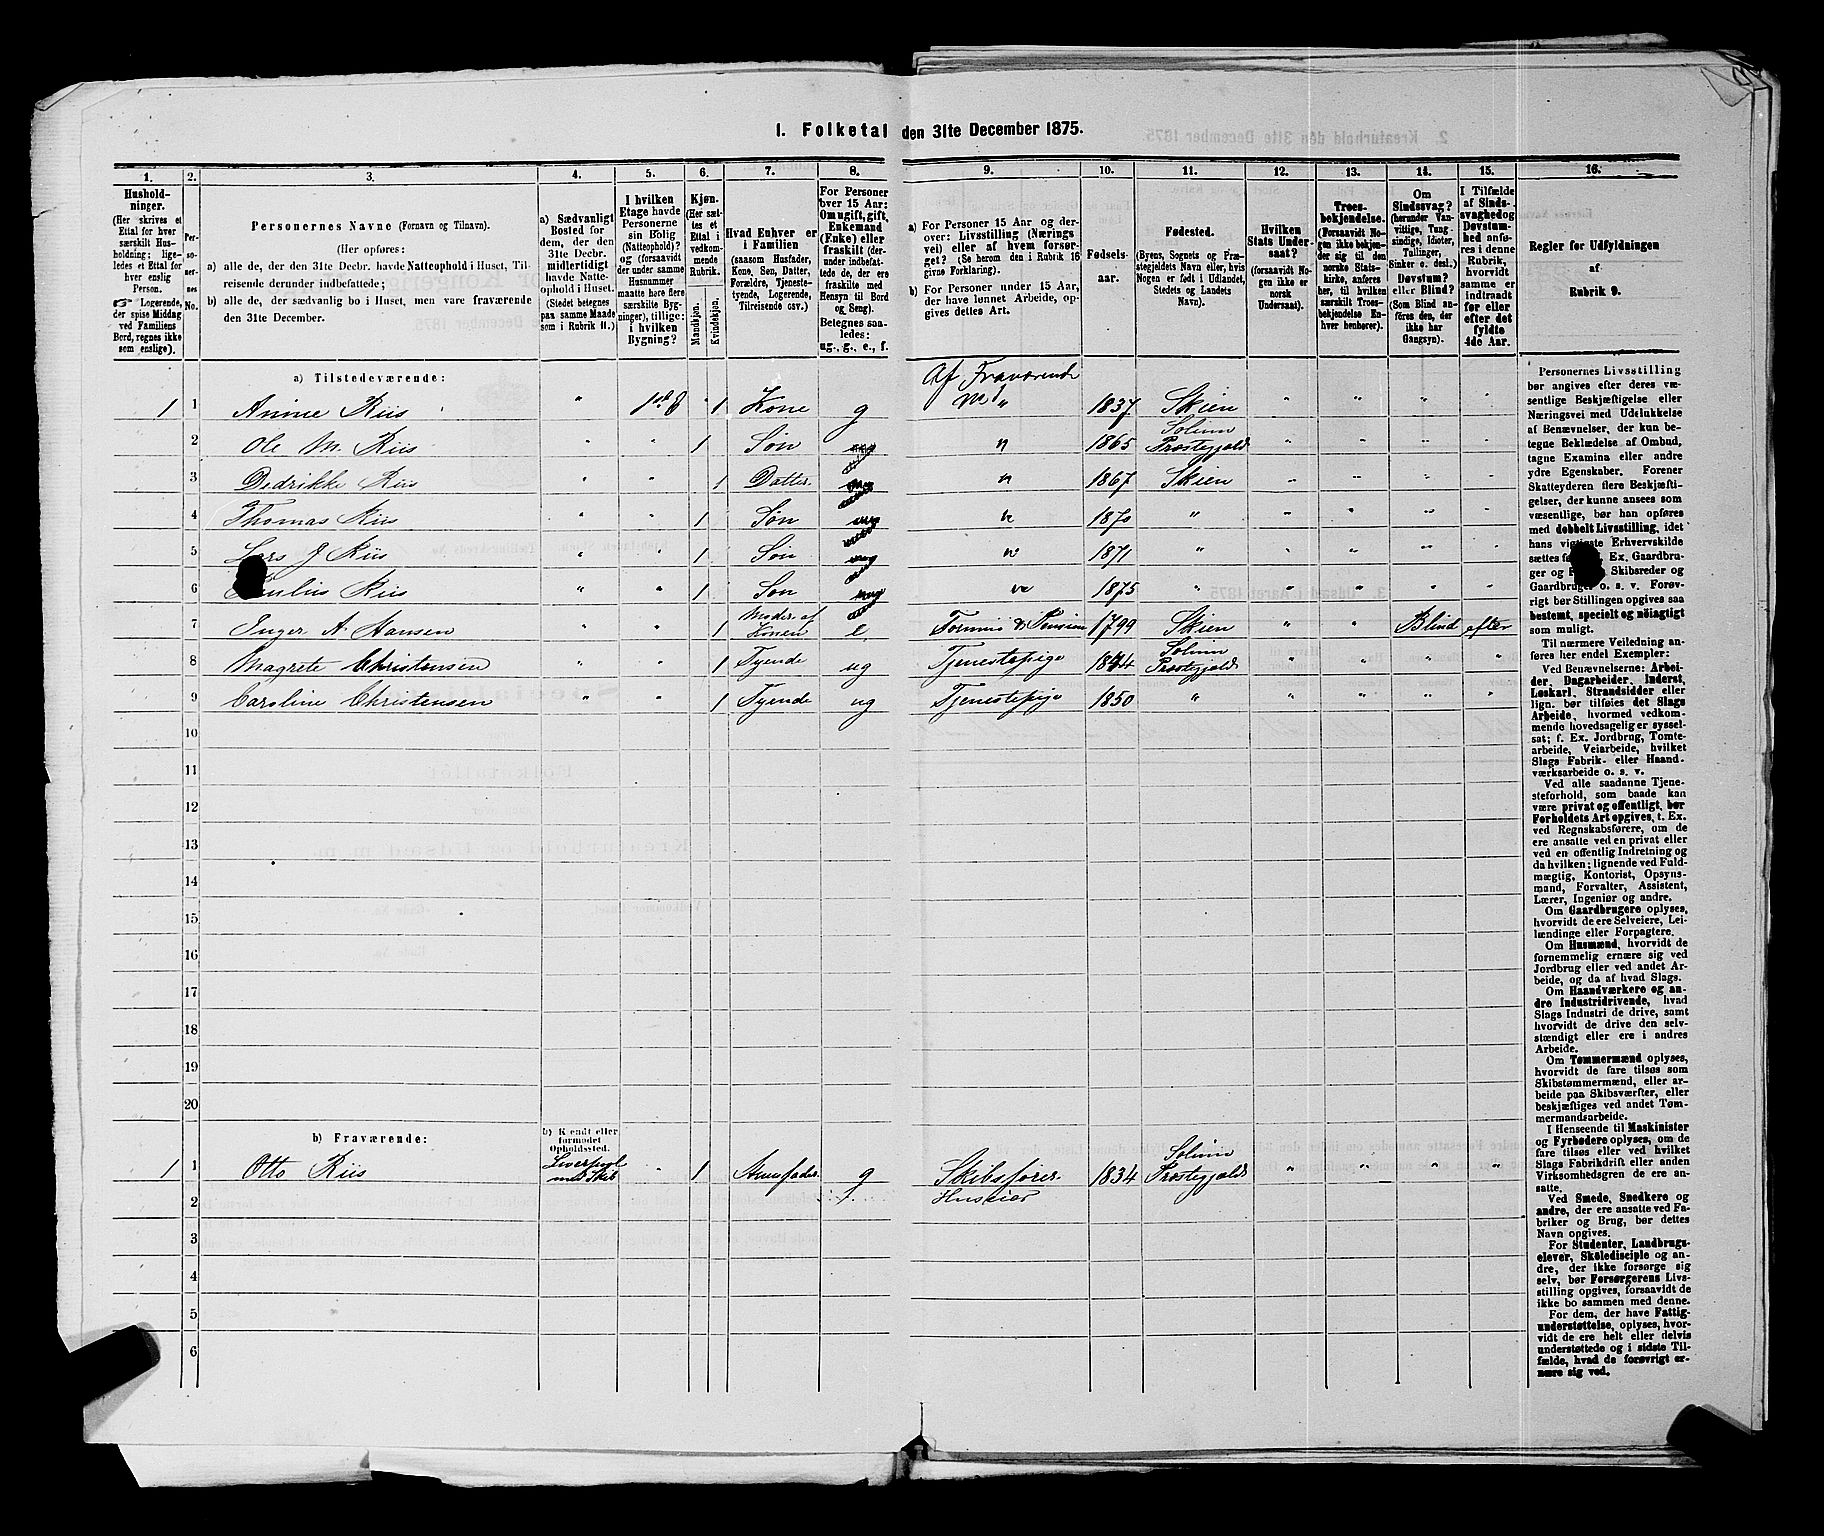 I. Folketal den 31te December 1875.
1. 2. 3. 4. 5. 6. 7. 8. 9. 10. 11. 12. 13. 14. 15. 16.
Husholdninger.
(Her skrives et Ettal for hver særskilt Husholdning; ligeledes et Ettal for hver enslig Person.
Logerende, der spise Middag ved Familiens Bord, regnes ikke som enslige).
Personernes No.
Personernes Navne (Fornavn og Tilnavn).
(Her opføres:
a) alle de, der den 31te Decbr. havde Natteophold i Huset, Tilreisende derunder indbefattede;
b) alle de, der sædvanlig bo i Huset, men vare fraværende den 31te December.
a) Sædvanligt Bosted for dem, der den 31te Decbr. midlertidigt havde Natteophold i Huset.
(Stedet betegnes paa samme Maade som i Rubrik 11.)
I hvilken Etage havde Personerne sin Bolig (Natteophold)? og (forsaavidt der under samme Husnummer maatte høre flere særskilte Bygninger), tillige: i hvilken Bygning?
Kjøn.
(Her sættes et Ettal i vedkommende Rubrik.
Mandkjøn.
Kvindekjøn.
Hvad Enhver er i Familien
(saasom Husfader, Kone, Søn, Datter, Forældre, Tjenestetyende, Logerende, Tilreisende osv.)
For Personer over 15 Aar: Om ugift, gift, Enkemand (Enke) eller fraskilt (derunder indbefattede de, der ere fraskilte med Hensyn til Bord og Seng).
Betegnes saaledes:
ug., g., e., f.
a) For Personer 15 Aar og derover: Livsstilling (Nærings vei) eller af hvem forsørget? (Se herom den i Rubrik 16 givne Forklaring).
b) For Personer under 15 Aar, der have lønnet Arbeide, opgives dettes Art.
Fødselsaar.
Fødested.
(Byens, Sognets og Præstegjeldets Navn eller, hvis Nogen er født i Udlandet, Stedets og Landets Navn).
Hvilken Stats Undersaat?
(forsaavidt Nogen ikke er norsk Undersaat).
Troesbekjendelse.
(Forsaavidt Nogen ikke bekjender sig til den norske Statskirke, anføres her, til hvilken særskilt Troesbekjendelse Enhver henhører).
Om Sindssvag?
(herunder Vanvittige, Tungsindige, Idioter, Tullinger, Sinker o. desl.)
Døvstum? eller Blind?
(Som Blind anføres den, der ikke har Gangsyn).
I Tilfælde af Sindssvaghed og Døvstumhed anføres i denne Rubrik, hvorvidt samme er indtraadt før eller efter det fyldte 4de Aar.
Regler for Udfyldningen af Rubrik 9.
a) Tilstedeværende:
Af Fraværende
1 1 Anine Riis " 1 Kone g № 1 " 1837 Skien " " " "
2 Ole M. Riis " " 1 Søn " 1865 Solum Præstegjeld " " " "
3 Dedrikke Riis " " 1 Datter " 1867 Skien " " " "
4 Thomas Riis " " 1 Søn " 1870 " " " " "
5 Lars J Riis " " 1 Søn " 1871 " " " " "
6 Riis " " 1 Søn " 1875 " " " " "
7 Inger A. Hansen " " 1 Moder af Konen e Formue & Pension 1799 Skien " " Blind efter
8 Magrete Christensen " " 1 Tyende ug Tjenestepige 1844 Solum Præstegjeld " " " "
9 Caroline Christensen " " 1 Tyende ug Tjenestepige 1850 " " " " "
10
11
12
13
14
15
16
17
18
19
20
b) Fraværende:
b) Kjendt eller formodet Opholdssted.
1 1 Otto Riis Liverpool med Skib " 1 Huusfader g Skibsfører Huseier 1834 Solum Præstegjeld " " " "
2
3
4
5
6
Personernes Livsstilling
bør angives efter deres væ-
sentlige Beskjæftigelse eller
Næringsvei med Udelukkelse
af Benævnelser, der kun be-
tegne Beklædelse af Ombud,
tagne Examina eller andre
ydre Egenskaber. Forener
Skatteyderen flere Beskjæfti-
gelser, der kunne ansees som
væsentlige, bør han opføres
med dobbelt Livsstilling, idet
hans vigtigste Erhvervskilde
sættes først. Ex. Gaardbru-
ger og Skibsreder og
Gaardbruger o. s. v. Forøv-
rigt bør Stillingen opgives saa
bestemt, specielt og nøiagtigt
som muligt.
Til nærmere Veiledning an-
føres her endel Exempler:
Ved Benævnelserne: Arbei-
der, Dagarbeider, Inderst,
Løskarl, Strandsidder eller
lign. bør tilføies det Slags
Arbeide, hvormed vedkom-
mende hovedsagelig er syssel-
sat; f. Ex. Jordbrug, Tomte-
arbeide, Veiarbeide, hvilket
Slags Fabrik- eller Haand-
værksarbeide o. s. v.
Ved alle saadanne Tjene-
steforhold, som baade kan
være privat og offentligt, bør
Forholdets Art opgives, t. Ex.
ved Regnskabsførere, om de
ere ansatte ved en privat eller
ved en offentlig Indretning og
da hvilken; lignende ved Fuld-
mægtig, Kontorist, Opsyns-
mand, Forvalter, Assistent,
Lærer, Ingeniør og andre.
Om Gaardbrugere oplyses,
hvorvidt de ere Selveiere, Lei-
lændinge eller Forpagtere.
Om Husmænd, hvorvidt de
fornemmelig ernære sig ved
Jordbrug eller ved andet Ar-
beide, og da af hvad Slags.
Om Haandværkere og an-
dre Industridrivende, hvad
Slags Industri de drive, samt
hvorvidt de drive den selv-
stændigt eller ere i andres
Arbeide.
Om Tømmermænd oplyses,
hvorvidt de fare tilsøs som
Skibstømmermænd, eller ar-
beide paa Skibsværfter, eller
beskjæftiges ved andet Tøm-
mermandsarbeide.
I Henseende til Maskinister
og Fyrbødere oplyses, om de
fare tilsøs eller ved hvilket
Slags Fabrikdrift eller anden
Virksomhedsgren de ere an-
satte.
Ved Smede, Snedkere og
andre, der ere ansatte ved Fa-
briker og Brug, bør dettes
Navn opgives.
For Studenter, Landbrugs-
elever, Skoledisciple og an-
dre, der ikke forsørge sig
selv, bør Forsørgerens Livs-
stilling opgives, forsaavidt de
ikke bo sammen med denne.
For dem, der have Fattig-
understøttelse, oplyses, hvor-
vidt de ere helt eller delvis
understøttede og i sidste Til-
fælde, hvad de forøvrigt er-
nære sig ved.